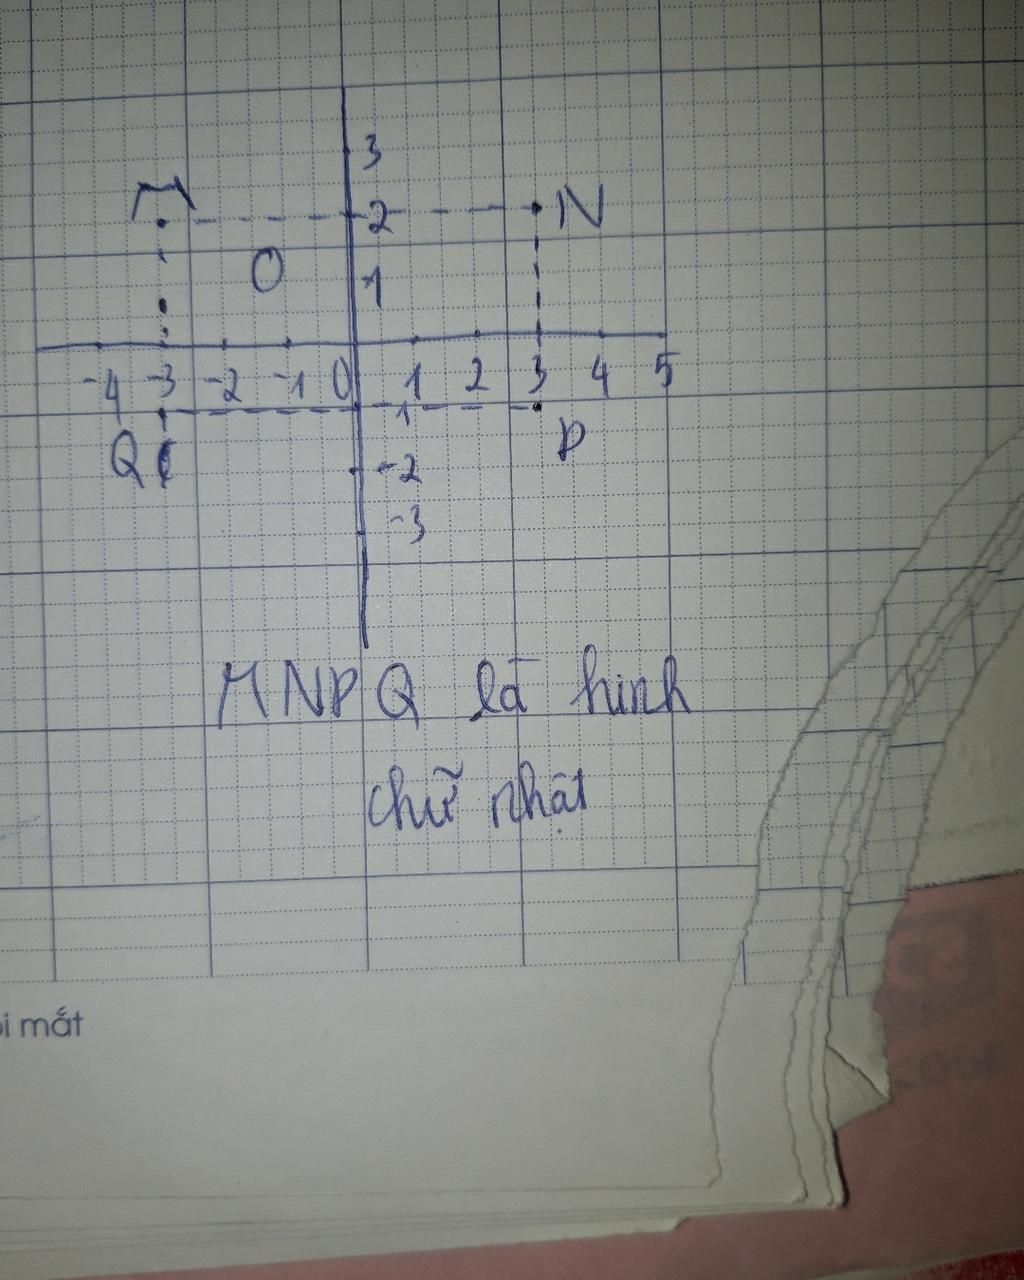 3
M
2
N
O
1
-4 -3 -2 -1 0 1 2 3 4 5
-1
Q
P
-2
-3
MNPQ là hinh
chữ nhật
i mắt